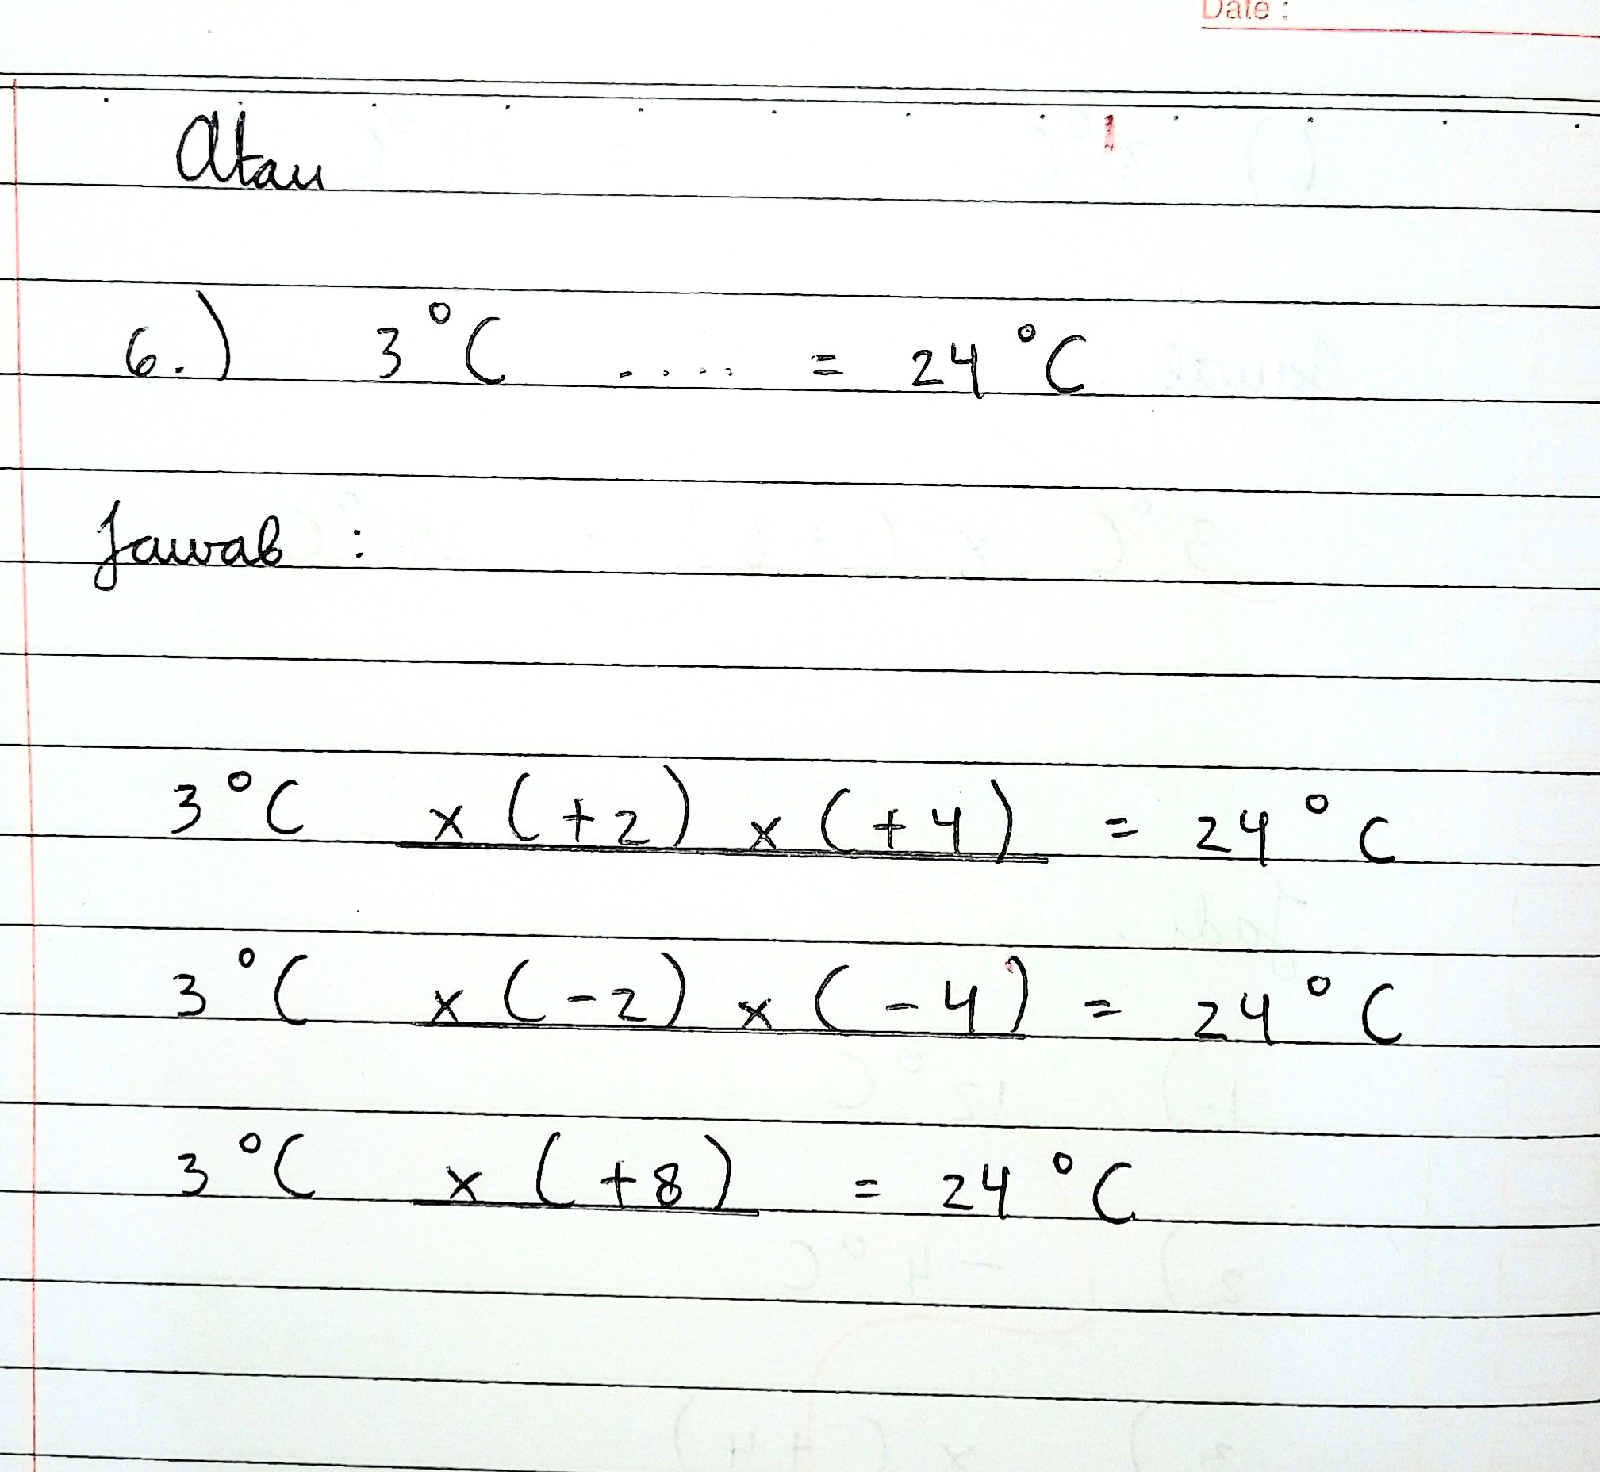 Date :
Atau
6.) 3°C ..... = 24°C
Jawab :
3°C x (+2) x (+4) = 24°C
3°C x (-2) x (-4) = 24°C
3°C x (+8) = 24°C